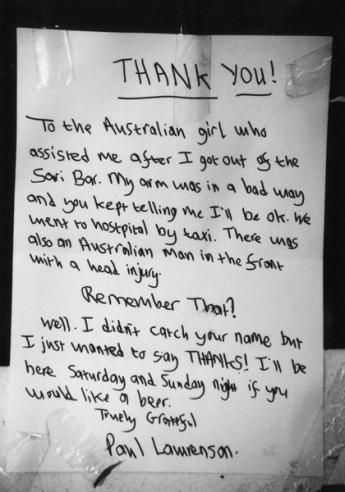 THANK YOU!
To the Australian girl who
assisted me after I got out of the
Sari Bar. My arm was in a bad way
and you kept telling me I'll be ok. We
went to hostpital by taxi. There was
also an Australian man in the front
with a head injury.
Remember That?
Well. I didn't catch your name but
I just wanted to say THANKS! I'll be
here Saturday and Sunday night if you
would like a beer.
Truely Grateful
Paul Lawrenson.